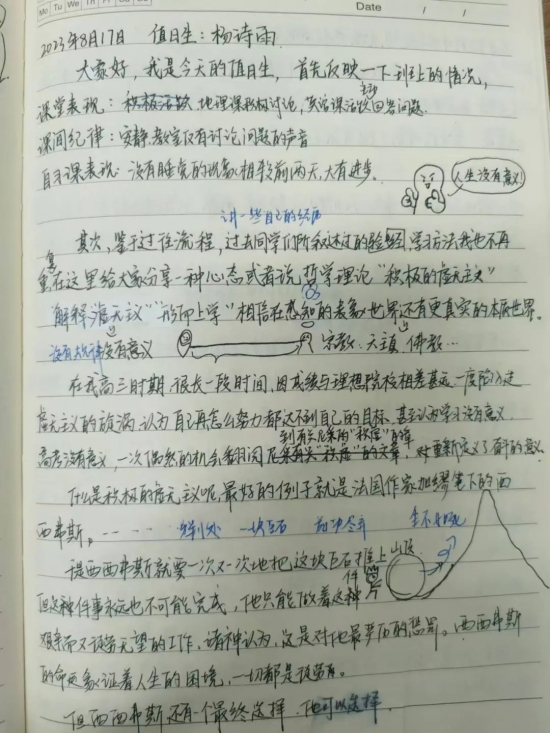 Mo Tu We Th Fr Sa Su
Date / /
2023年8月17日 值日生：杨诗雨
大家好，我是今天的值日生，首先反映一下班上的情况，
课堂表现：积极活跃 地理课积极讨论，英语课活跃回答问题
主动
课间纪律：安静，教室仅有讨论问题的声音
自习课表现：没有睡觉的现象，相较前两天，大有进步。
人生没有意义！
讲一些自己的经历
其次，鉴于过往流程，过去同学们所叙述过的经验，学习方法我也不再
复
重在这里给大家分享一种心态或者说，哲学理论“积极的虚无主义”
解释“虚无主义”“形而上学”相信在感知的表象世界还有更真实的本质世界。
没有规律 没有意义
宗教、天主、佛教…
在我高三时期，很长一段时间，因成绩与理想院校相差甚远，一度陷入走
虚无主义的漩涡，认为自己再怎么努力都达不到自己的目标，甚至认为学习没有意义，
到有关尼采的
高考没有意义，一次偶然的机会翻阅 的文章，对重新定义了奋斗的意义
什么是积极的虚无主义呢，最好的例子就是法国作家加缪笔下的西
西弗斯。…… 一块巨石
是西西弗斯就要一次又一次地把这块巨石推上山顶
但这种事永远也不可能完成，他只能做着这种
件
艰辛而又徒劳无望的工作，诸神认为，这是对他最严厉的惩罚。西西弗斯
的命运象证着人生的困境，一切都是徒劳。
但西西弗斯还有一个最终选择，他可以选择，